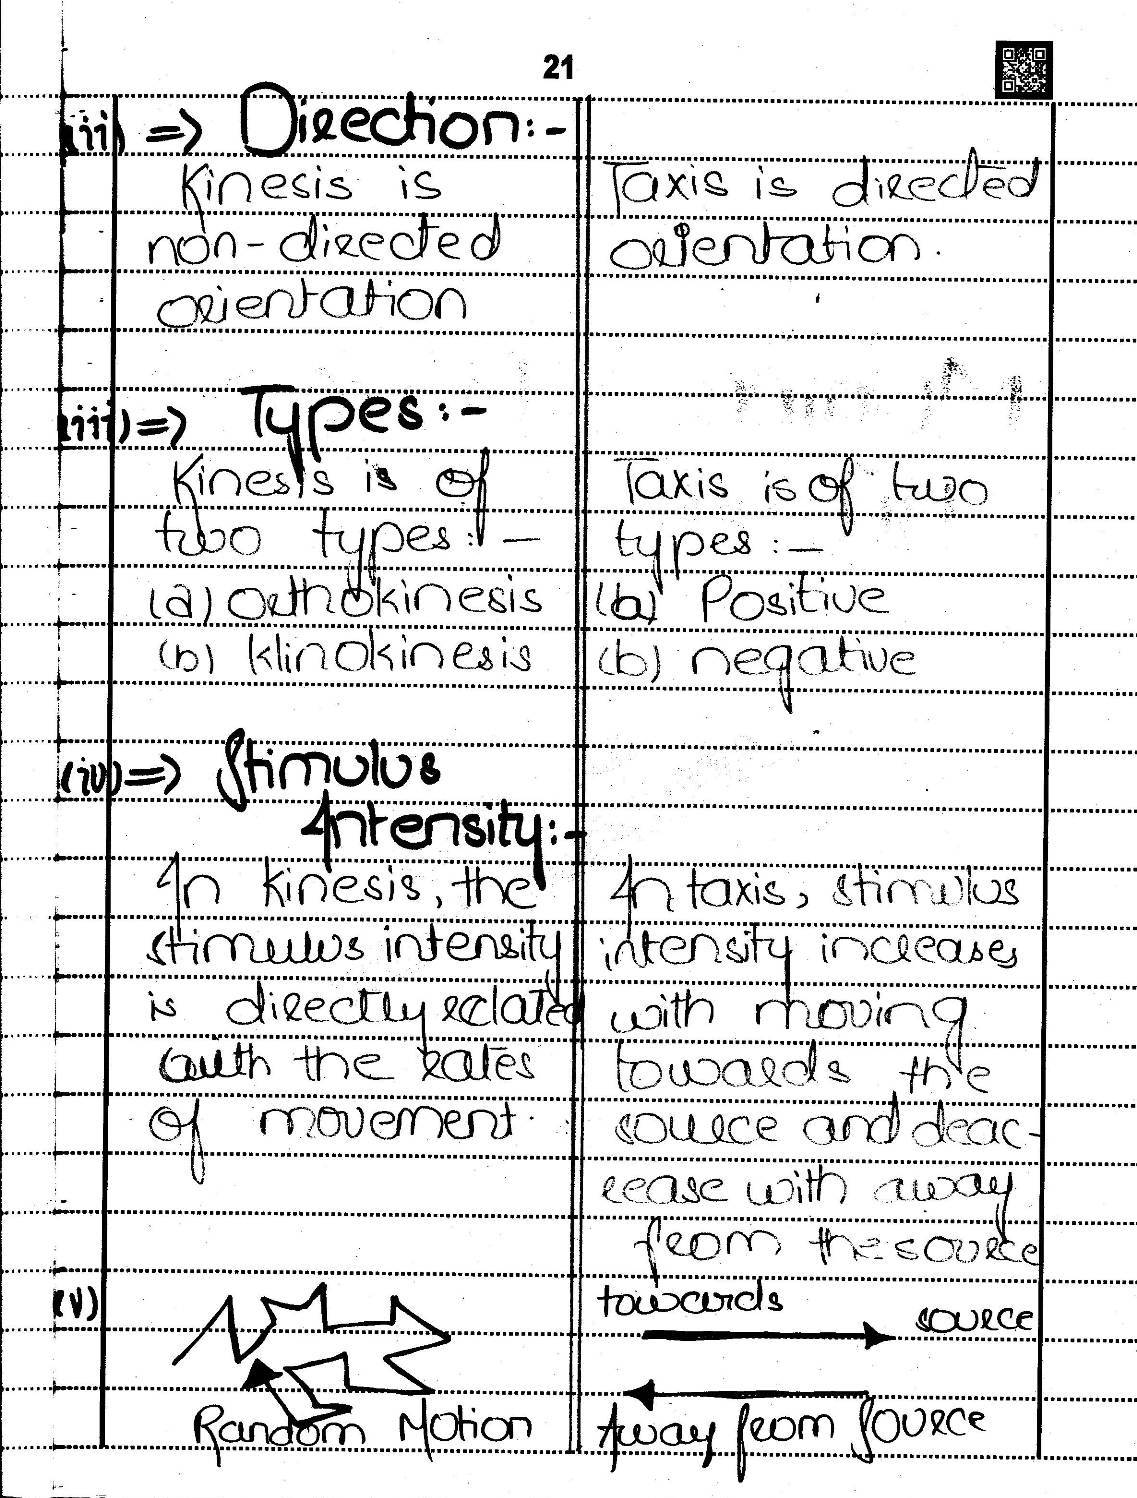 21
(ii) => Direction:-
Kinesis is
non-directed
orientation
Taxis is directed
orientation.
(iii) => Types:-
Kinesis is of
two types:-
(a) Orthokinesis
(b) klinokinesis
Taxis is of two
types:-
(a) Positive
(b) negative
(iv) => Stimulus
Intensity:-
In kinesis, the
stimulus intensity
is directly related
with the rates
of movement.
In taxis, stimulus
intensity increases
with moving
towards the
source and deac-
rease with away
from the source
(v)
Random Motion
towards
source
Away from Source